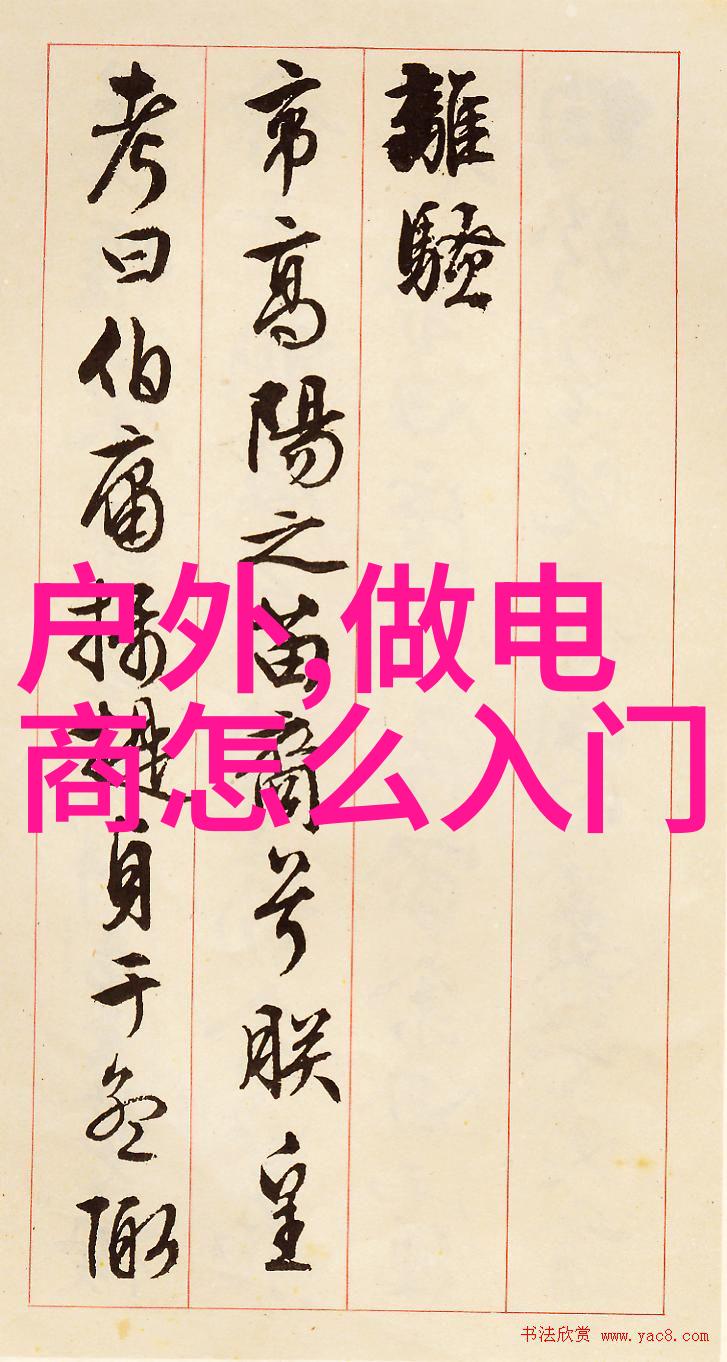 離騷
帝高陽之苗裔兮朕皇
考曰伯庸攝提貞于孟陬
户外,做电
商怎么入门
书法欣赏 www.yac8.com